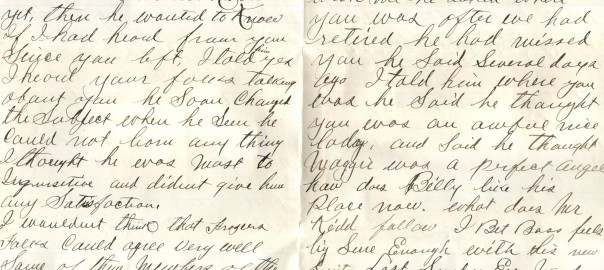 yet, then he wanted to Know
if I had heard from you
Since you left, I told him yes
I heard your folks talking
about you he Soon Changed
the subject when he seen he
Could not learn any thing
I thought he was most to
Inquisitive and dident give him
any Satisfaction
I wouldent think that
Folks Could agree very well
Some of them members of the
you was after we had
retired he had missed
you he Said Several days
ago I told him where you
was he Said he thought
you was an awful nice
lady, and Said he thought
Maggie was a perfect Angel
how does Billy like his
place now. what does Mr
Kedd fellow I Bet Boss feels
big Sure Enough with his new